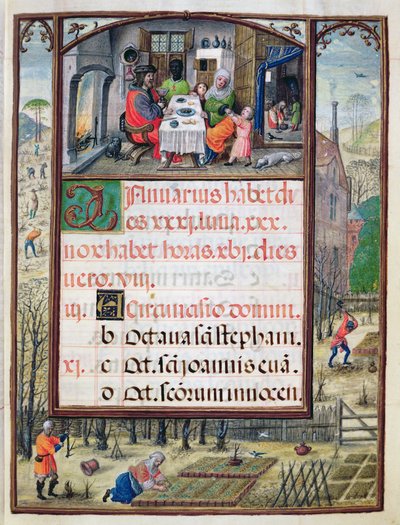 Januarius habet di
es xxxi. luna. xxx.
nox habet horas. xbj. dies
uero. viii.
iii. A Circuncisio domini.
b Octava scti stephani.
xi. c Oct. scti joannis evā.
d Oct. sctorum innocen.